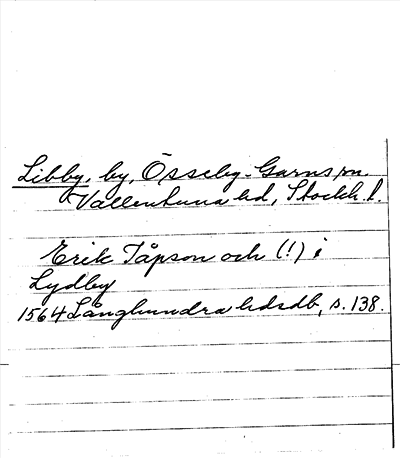 Libby, by, Össeby-Garns sn
Vallentuna hd, Stockh. l.
Erik Tåpson och (!) i
Lydby
1564 Långhundra hdsdb, s. 138.